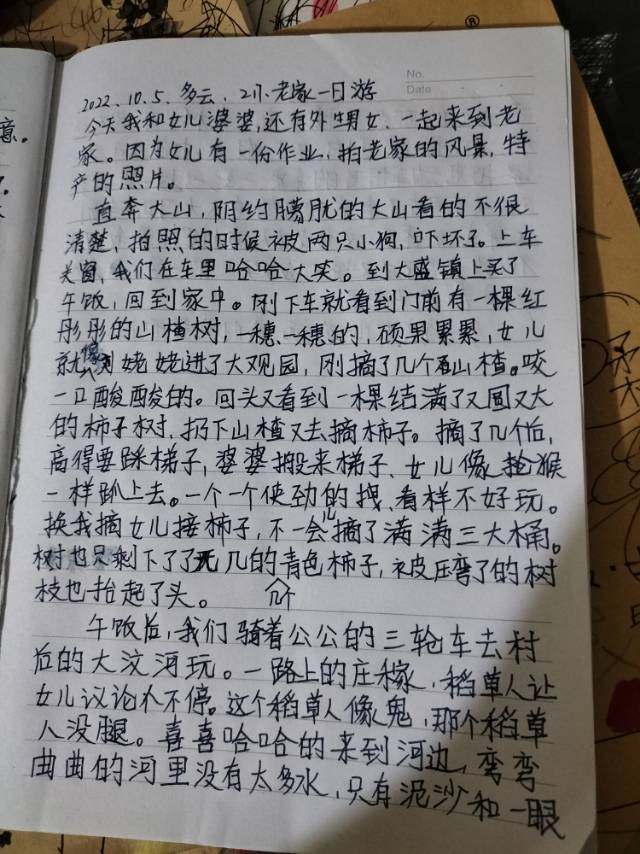 No.
Date
®
2022.10.5. 多云. 211小老家一日游
今天我和女儿婆婆,还有外甥女.一起来到老
家。因为女儿有一份作业,拍老家的风景,特
产的照片。
直奔大山,阴约朦胧的大山看的不很
清楚,拍照的时候被两只小狗,吓坏了。上车
关窗,我们在车里哈哈大笑。到大盛镇上买了
午饭,回到家中。刚下车就看到门前有一棵红
彤彤的山楂树,一穗、一穗的,硕果累累,女儿
就像刘姥姥进了大观园,刚摘了几个山楂。咬
一口酸酸的。回头又看到一棵结满了又圆又大
的柿子树,扔下山楂又去摘柿子。摘了几个后,
高得要踩梯子,婆婆搬来梯子、女儿像猴
一样趴上去。一个一个使劲的拽、看样不好玩。
换我摘女儿接柿子,不一会儿摘了满满三大桶。
树也只剩下了了无几的青色柿子,被压弯了的树
枝也抬起了头。
几个
午饭后,我们骑着公公的三轮车去村
后的大汶河玩。一路上的庄稼.稻草人让
女儿议论不停。这个稻草人像鬼,那个稻草
人没腿。喜喜哈哈的来到河边,弯弯
曲曲的河里没有太多水,只有泥沙和一眼
意。